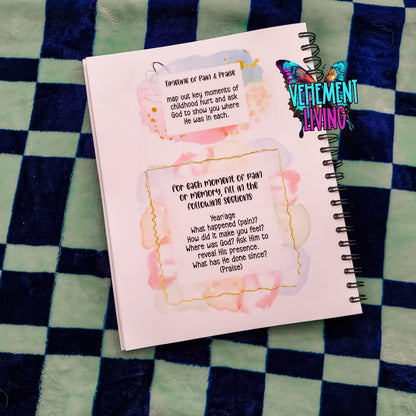 Timeline of Pain & Praise
map out key moments of
childhood hurt and ask
God to show you where
He was in each.
VEHEMENT
LIVING
For each moment of pain
or memory, fill in the
following sections
Year/age
What happened (pain)?
How did it make you feel?
Where was God? Ask Him to
reveal His presence.
What has He done since?
(Praise)